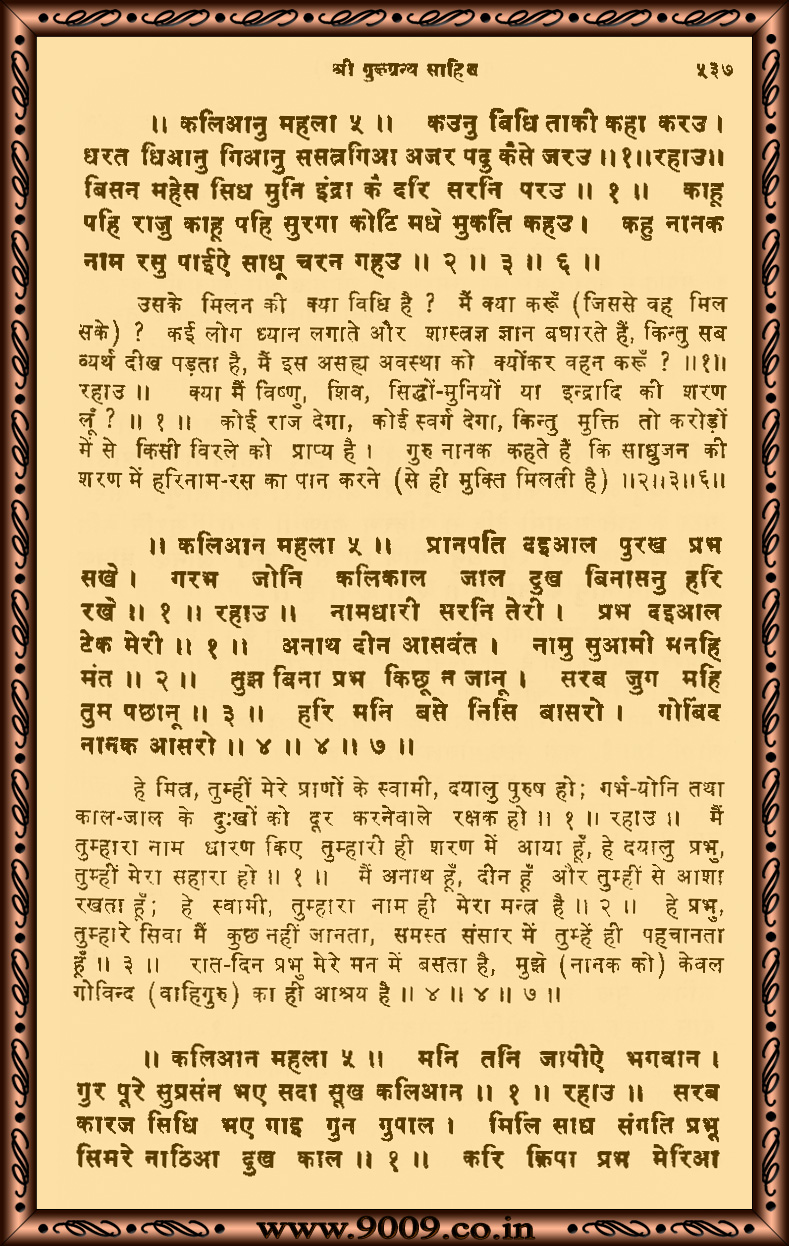 श्री गुरूग्रन्थ साहिब ५३७
।। कलिआनु महला ५ ।। कउनु बिधि ताकी कहा करउ ।
धरत धिआनु गिआनु ससत्रगिआ अजर पदु कैसे जरउ ।।१।।रहाउ।।
बिसन महेस सिध मुनि इंद्रा कै दरि सरनि परउ ।। १ ।। काहू
पहि राजु काहू पहि सुरगा कोटि मधे मुकति कहउ । कहु नानक
नाम रसु पाईऐ साधू चरन गहउ ।। २ ।। ३ ।। ६ ।।
उसके मिलन की क्या विधि है ? मैं क्या करूँ (जिससे वह मिल
सके) ? कई लोग ध्यान लगाते और शास्त्रज्ञ ज्ञान बघारते हैं, किन्तु सब
व्यर्थ दीख पड़ता है, मैं इस असह्य अवस्था को क्योंकर वहन करूँ ? ।।१।।
रहाउ ।। क्या मैं विष्णु, शिव, सिद्धों-मुनियों या इन्द्रादि की शरण
लूँ ? ।। १ ।। कोई राज देगा, कोई स्वर्ग देगा, किन्तु मुक्ति तो करोड़ों
में से किसी विरले को प्राप्य है । गुरु नानक कहते हैं कि साधुजन की
शरण में हरिनाम-रस का पान करने (से ही मुक्ति मिलती है) ।।२।।३।।६।।
।। कलिआन महला ५ ।। प्रानपति दइआल पुरख प्रभ
सखे । गरभ जोनि कलिकाल जाल दुख बिनासनु हरि
रखे ।। १ ।। रहाउ ।। नामधारी सरनि तेरी । प्रभ दइआल
टेक मेरी ।। १ ।। अनाथ दीन आसवंत । नामु सुआमी मनहि
मंत ।। २ ।। तुझ बिना प्रभ किछू न जानू । सरब जुग महि
तुम पछानू ।। ३ ।। हरि मनि बसे निसि बासरो । गोबिंद
नानक आसरो ।। ४ ।। ४ ।। ७ ।।
हे मित्र, तुम्हीं मेरे प्राणों के स्वामी, दयालु पुरुष हो; गर्भ-योनि तथा
काल-जाल के दुःखों को दूर करनेवाले रक्षक हो ।। १ ।। रहाउ ।। मैं
तुम्हारा नाम धारण किए तुम्हारी ही शरण में आया हूँ, हे दयालु प्रभु,
तुम्हीं मेरा सहारा हो ।। १ ।। मैं अनाथ हूँ, दीन हूँ और तुम्हीं से आशा
रखता हूँ; हे स्वामी, तुम्हारा नाम ही मेरा मन्त्र है ।। २ ।। हे प्रभु,
तुम्हारे सिवा मैं कुछ नहीं जानता, समस्त संसार में तुम्हें ही पहचानता
हूँ ।। ३ ।। रात-दिन प्रभु मेरे मन में बसता है, मुझे (नानक को) केवल
गोविन्द (वाहिगुरु) का ही आश्रय है ।। ४ ।। ४ ।। ७ ।।
।। कलिआन महला ५ ।। मनि तनि जापीऐ भगवान ।
गुर पूरे सुप्रसंन भए सदा सूख कलिआन ।। १ ।। रहाउ ।। सरब
कारज सिधि भए गाइ गुन गुपाल । मिलि साध संगति प्रभू
सिमरे नाठिआ दुख काल ।। १ ।। करि किपा प्रभ मेरिआ
www.9009.co.in